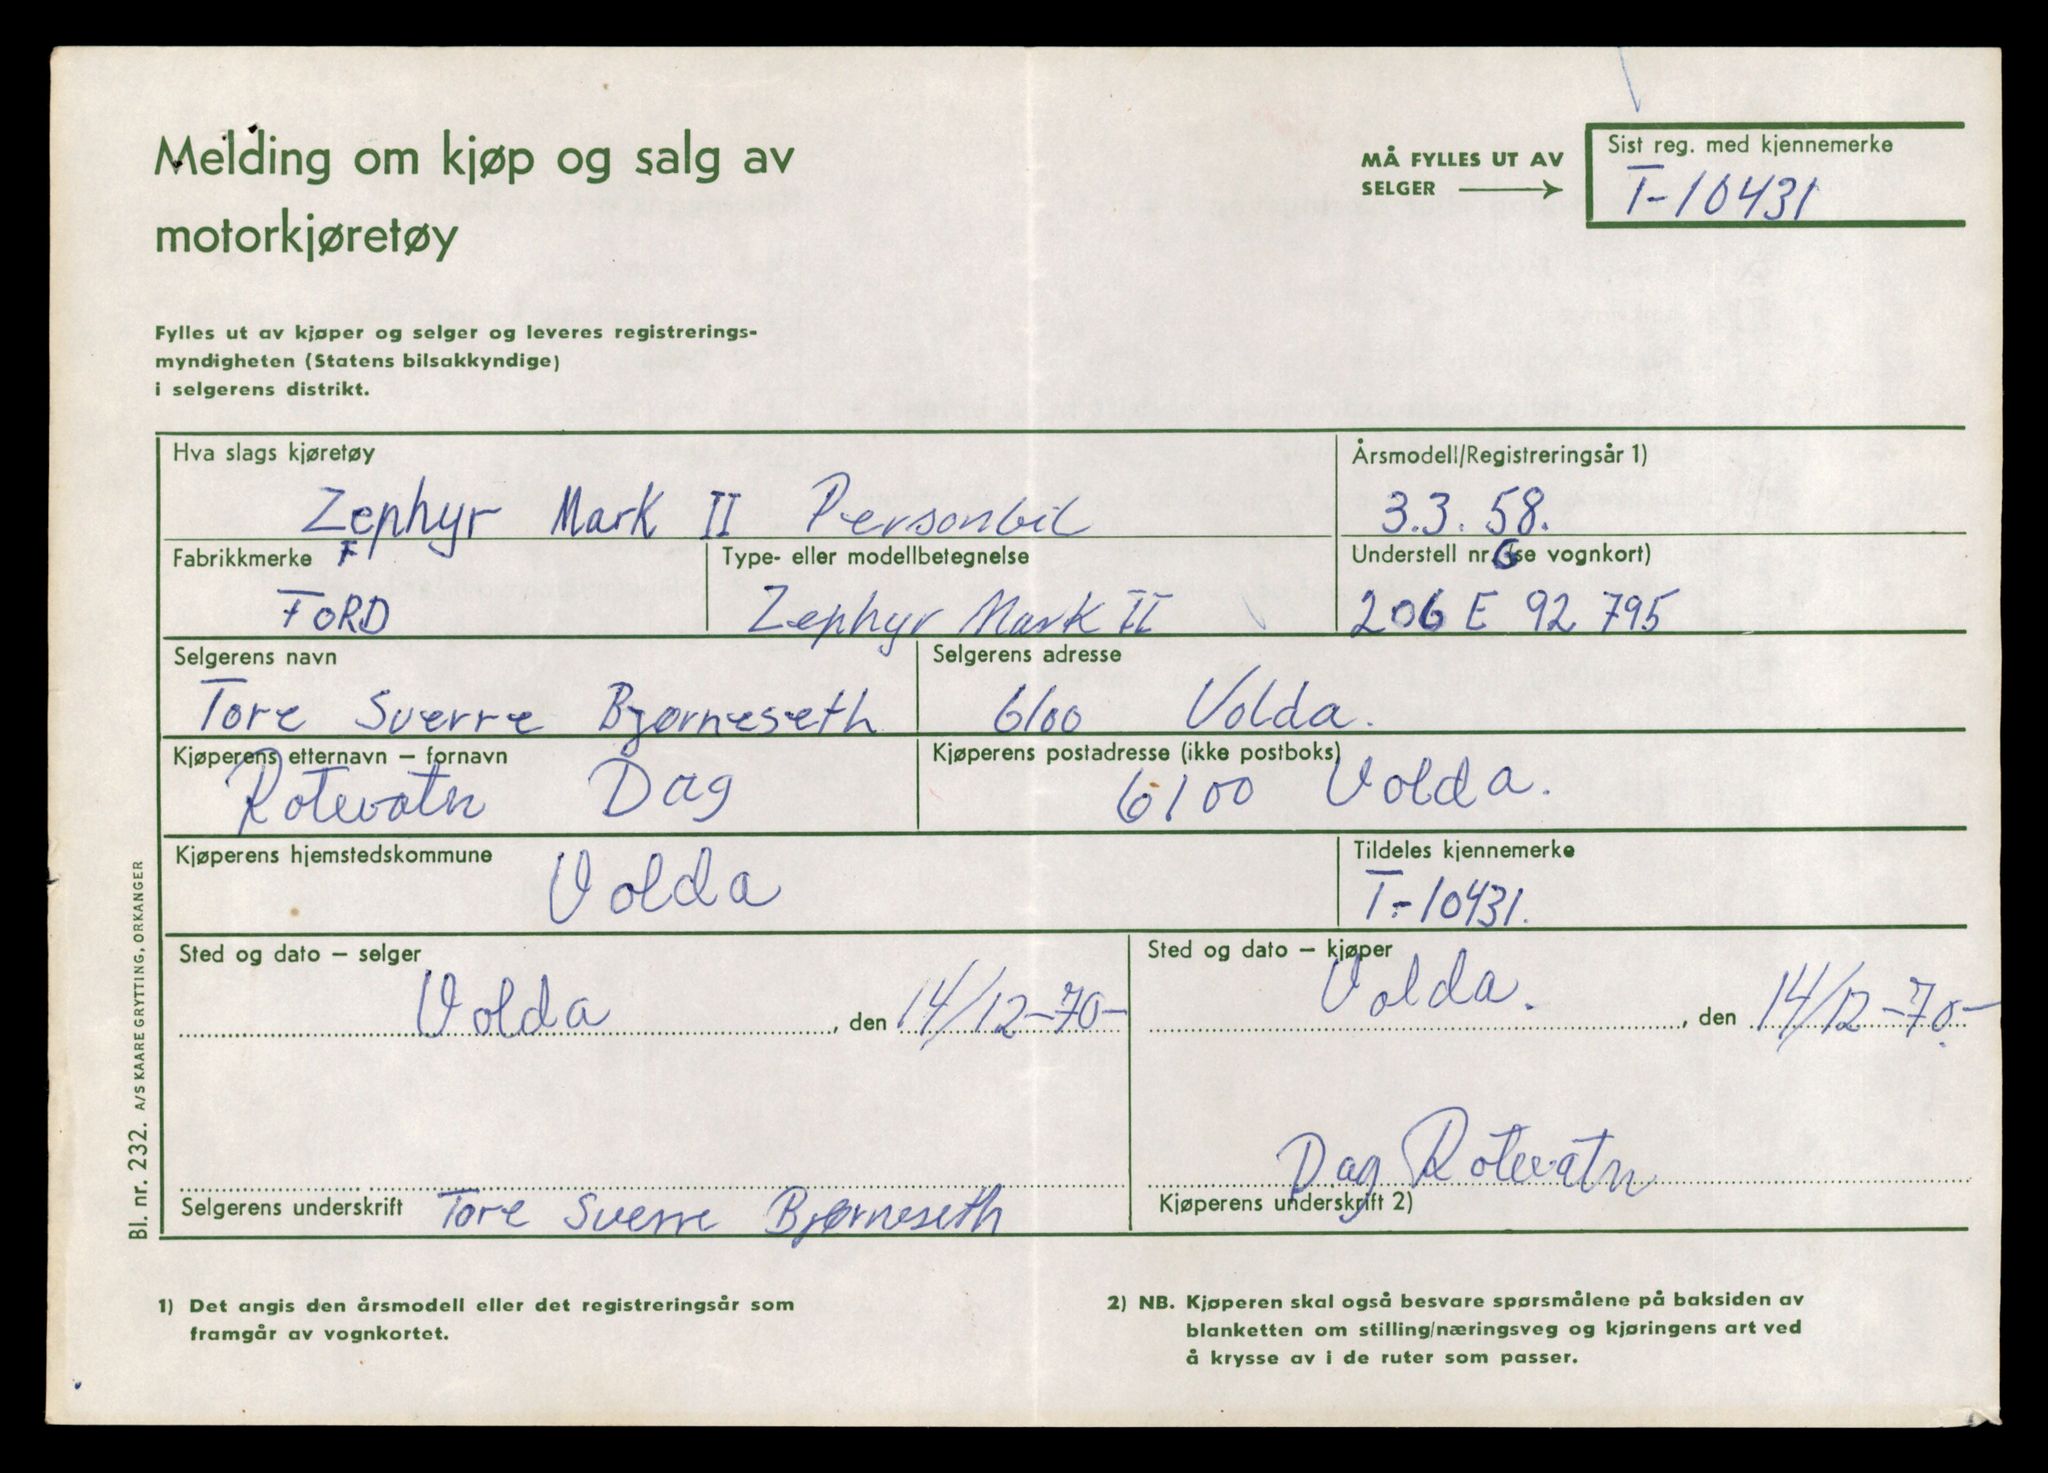 Melding om kjøp og salg av
motorkjøretøy
MÅ FYLLES UT AV
SELGER
Sist reg. med kjennemerke
T-10431
Fylles ut av kjøper og selger og leveres registrerings-
myndigheten (Statens bilsakkyndige)
i selgerens distrikt.
Hva slags kjøretøy
Zephyr Mark II Personbil
Årsmodell/Registreringsår 1)
3.3.58.
Fabrikkmerke F
FORD
Type- eller modellbetegnelse
Zephyr Mark II
Understell nr. (se vognkort)
6
206 E 92 795
Selgerens navn
Tore Sverre Bjørneseth
Selgerens adresse
6100 Volda.
Kjøperens etternavn – fornavn
Rotevatn Dag
Kjøperens postadresse (ikke postboks)
6100 Volda.
Kjøperens hjemstedskommune
Volda
Tildeles kjennemerke
T-10431.
Sted og dato – selger
Volda, den 14/12-70-
Sted og dato – kjøper
Volda., den 14/12-70-
Selgerens underskrift Tore Sverre Bjørneseth
Dag Rotevatn
Kjøperens underskrift 2)
Bl. nr. 232. A/S KAARE GRYTTING, ORKANGER
1) Det angis den årsmodell eller det registreringsår som
framgår av vognkortet.
2) NB. Kjøperen skal også besvare spørsmålene på baksiden av
blanketten om stilling/næringsveg og kjøringens art ved
å krysse av i de ruter som passer.